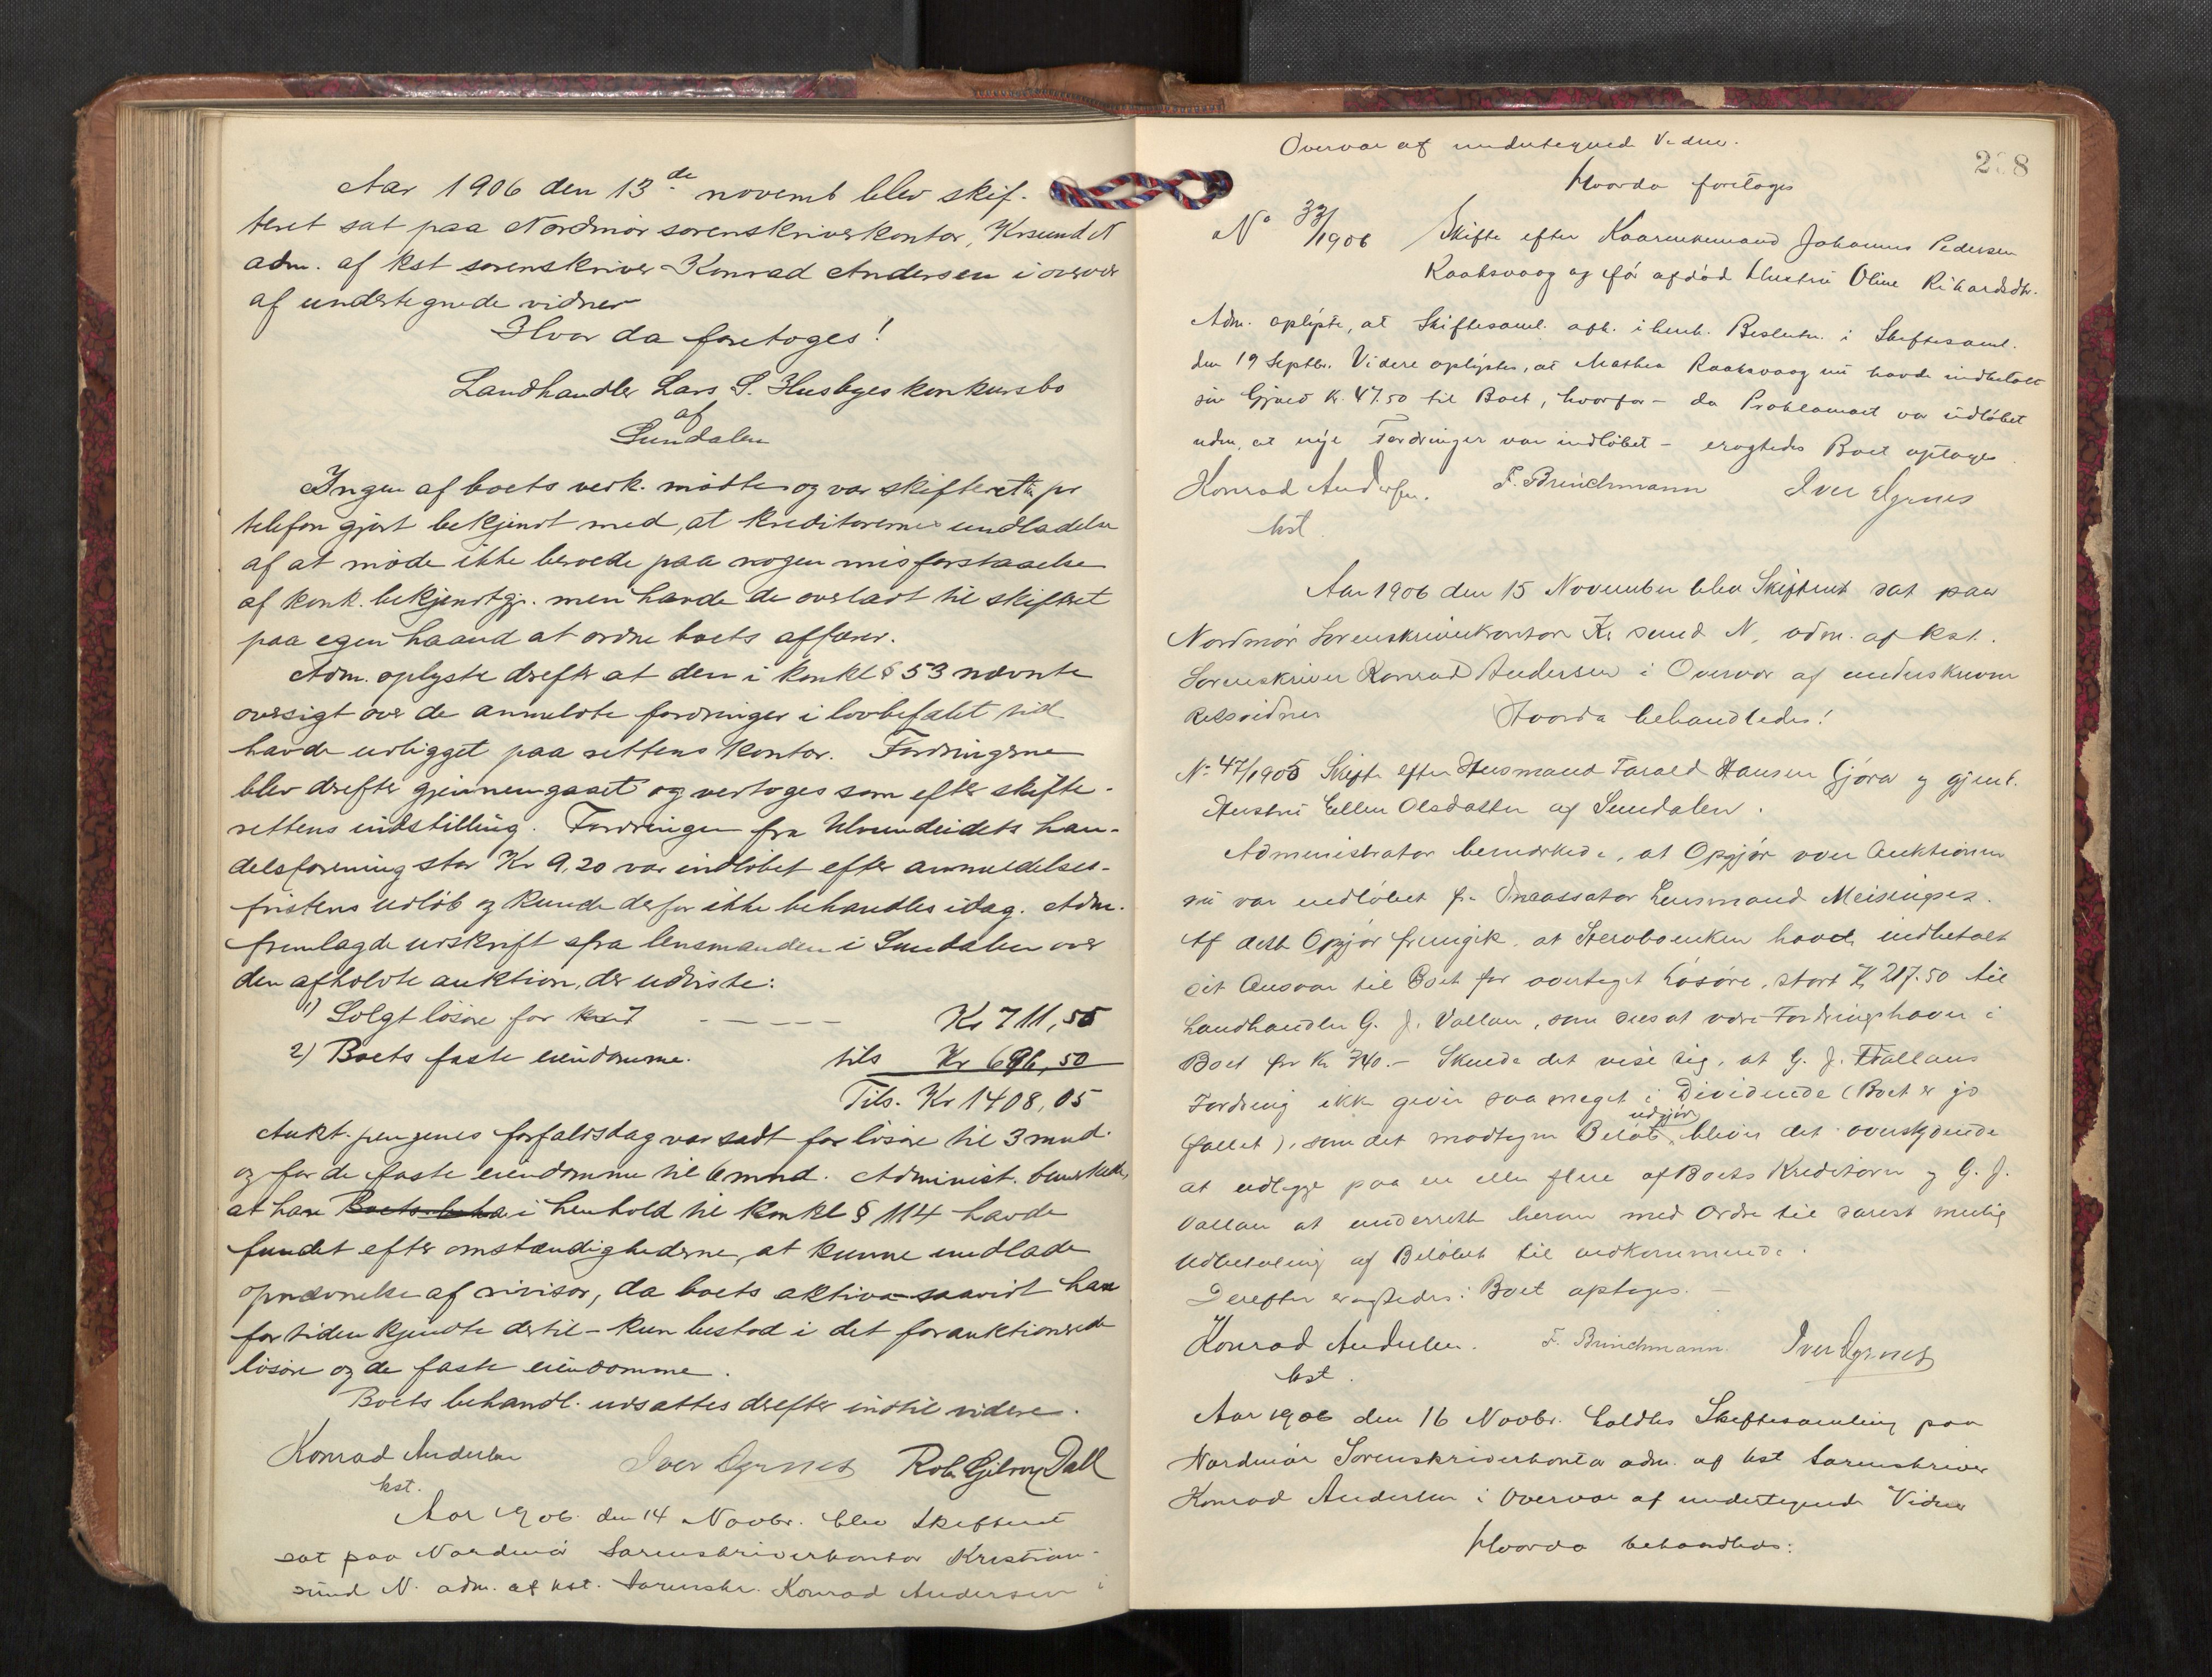 Aar 1906 den 13de novemb blev skif-
teret sat paa Nordmör sorenskriverkontor, Krsund N
adm. af kst sorenskriver Konrad Andersen i overvær
af undertegnede vidner
Hvor da foretoges!
Landhandler Lars S. Husbyes konkursbo
af
Sundalen
Ingen af boets vedk. mödte og var skifteretten pr
telefon gjort bekjendt med, at kreditorernes undladelse
af at möde ikke beroede paa nogen misforstaaelse
af konk. bekjendtgj. men havde de overladt til skifteret
paa egen haand at ordne boets affærer.
Adm. oplyste derefter at den i konkl § 53 nævnte
oversigt over de anmeldte fordringer i lovbefalet tid
havde udligget paa rettens kontor. Fordringerne
blev derefter gjennemgaaet og vedtoges som efter skifte-
rettens indstilling. Fordringen fra Ulvundeidets han-
delsforening stor Kr 9,20 var indlöbet efter anmeldelses-
fristens udlöb og kunde derfor ikke behandles idag. Adm.
fremlagde udskrift fra lensmanden i Sundalen over
den afholdte auktion, der udviste:
1) Solgt lösöre for - - - - Kr 711,55
2) Boets faste eiendomme. tils Kr 696,50
Tils. Kr 1408,05
Aukt. pengenes forfaldsdag var sadt for lösöre til 3 mnd.
og for de faste eiendomme til 6 mnd. Administ. bemerkede,
at han i henhold til konkl § 114 havde
fundet efter omstændighederne, at kunne undlade
opnævnelse af revisor, da boets aktiva saavidt han
for tiden kjendte dertil - kun bestod i det forauktionerede
lösöre og de faste eiendomme.
Boets behandl. udsattes derefter indtil videre.
Konrad Andersen Iver Ogrnes Robr Gilroy Dall
kst.
Aar 1906 den 14 Novbr. blev Skifteret
sat paa Nordmör Sorenskriverkontor Kristian-
sund N. adm. af kst. Sorenskr. Konrad Andersen i
Overvær af undertegned Vidner.
238
Hvorda foretoges
No 33/1906 Skifte efter Johannes Pedersen
Raaksvaag og för afdöd Hustru Oline Rikardsdtr.
Adm. oplyste, at Skiftesaml. afh. i henh. Beslutn. i Skiftesaml.
den 19 Septbr. Videre oplystes, at Mathea Raaksvaag nu havde indbetalt
sin Gjæld Kr. 47.50 til Boet, hvorfor - da Proklamaet var udlöbet
uden at nye Fordringer var indlöbet - eragtedes Boet optages.
Konrad Andersen. F. Brinchmann Iver Ogrnes
kst.
Aar 1906 den 15 November blev Skifteret sat paa
Nordmör Sorenskriverkontor Kr.sund N, adm. af kst.
Sorenskriver Konrad Andersen i Overvær af underskrevne
Retsvidner Hvorda behandledes!
No 47/1905 Skifte efter Husmand Tarald Hansen Gjöra og gjenl.
Hustru Ellen Olsdatter af Sundalen.
Administrator bemærkede, at Opgjör over Auktionen
nu var indlöbet fra Inkassator Lensmand Meisingset.
Af dette Opgjör fremgik, at Stervboenken havde indbetalt
sit Ansvar til Boet for overtaget Lösöre, stort Kr 217.50 til
Landhandler G. J. Vallan, som sees at være Fordringshaver i
Boet for Kr 340.- Skulde det vise sig, at G. J. Vallans
Fordring ikke giver saa meget i Dividende (Boet er jo
fallit), som det modtagne Belöb udgjör, bliver det overskydende
at udlegge paa en eller flere af Boets Kreditorer og G. J.
Vallan at underrette herom med Ordre til snarest mulig
Udbetaling af Belöbet til vedkommende.
Derefter eragtedes: Boet optages. -
Konrad Andersen. F. Brinchmann. Iver Ogrnes
kst.
Aar 1906 den 16 Novbr. holdtes Skiftesamling paa
Nordmör Sorenskriverkontor adm. af kst Sorenskriver
Konrad Andersen i Overvær af undertegnede Vidner
Hvorda behandledes: